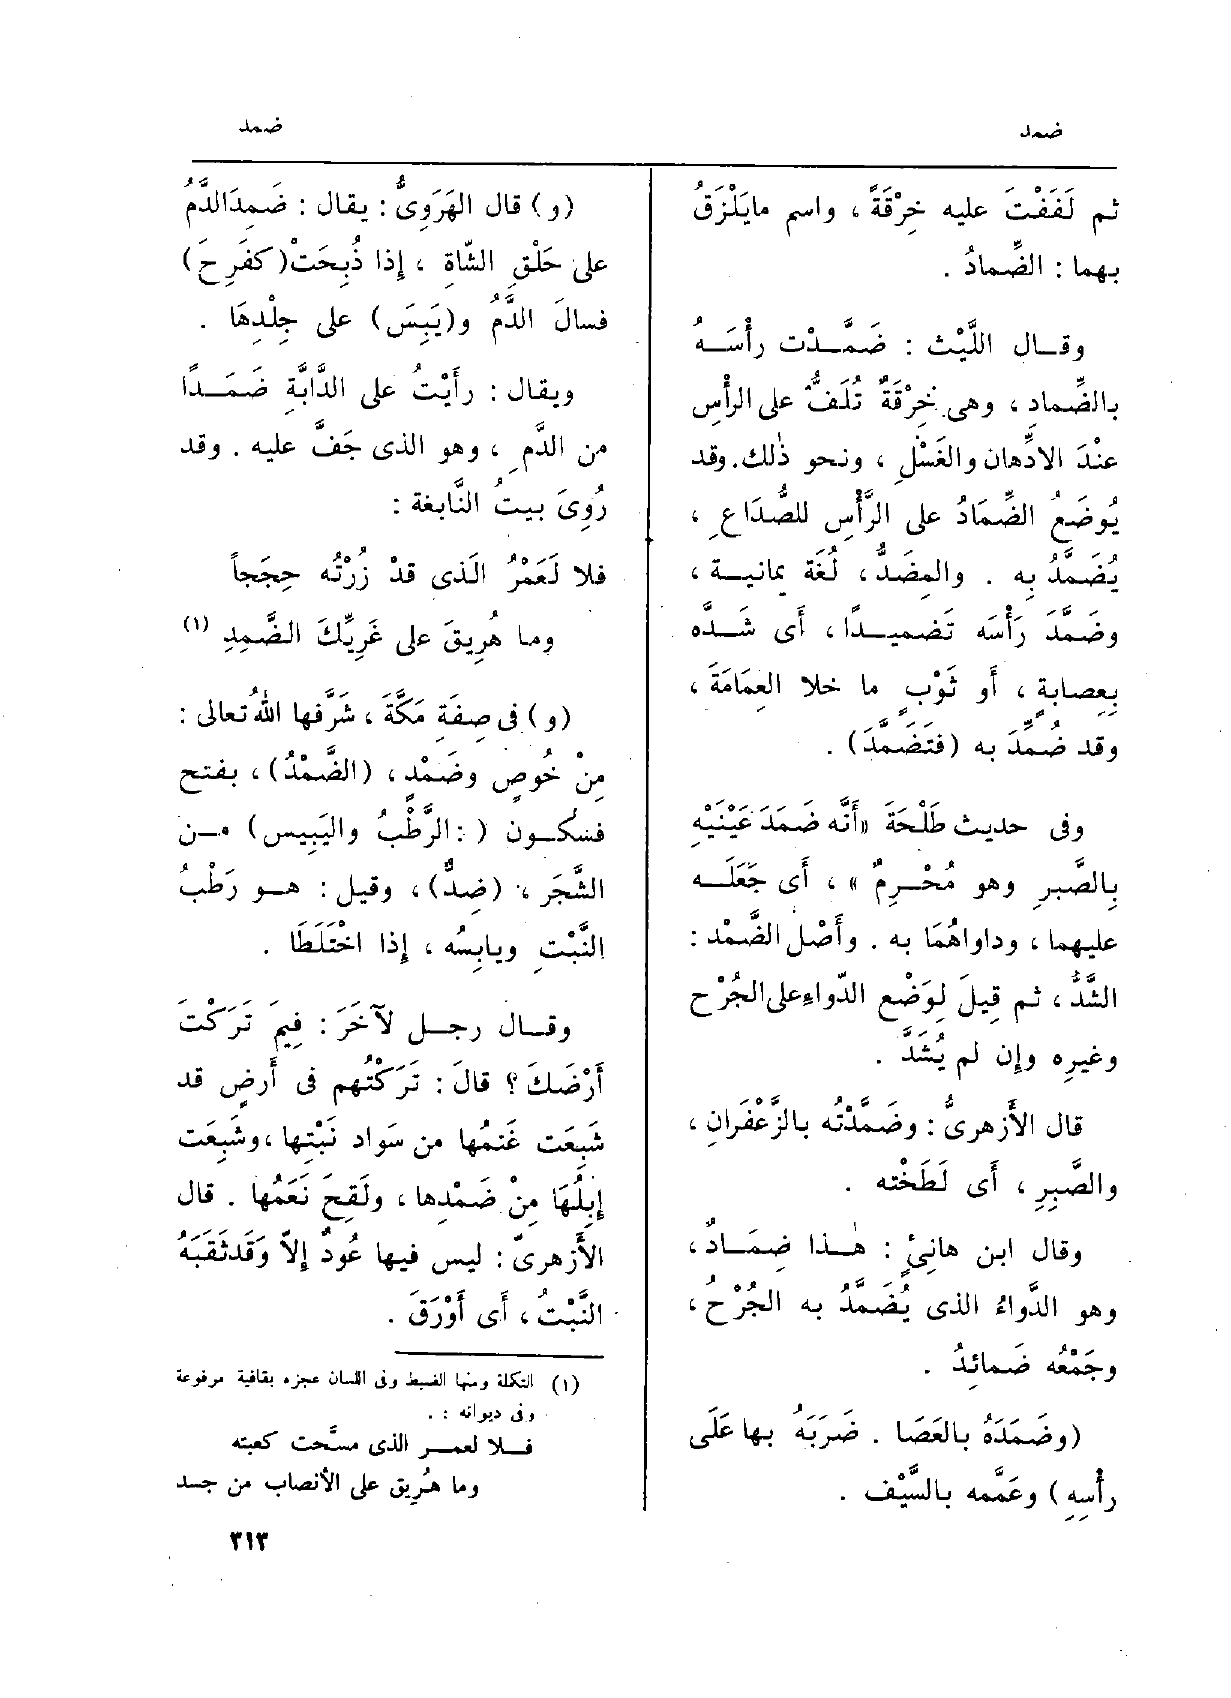 ضمد
ضمد
ثم لَفَفْتَ عليه خِرْقَةً ، واسم مايَلْزَقُ
بهما : الضِّمادُ .
وقـال اللَّيْث : ضَمَّـدْت رأْسَـهُ
بالضِّمادِ ، وهى خِرْقَةٌ تُلَفُّ على الرأْسِ
عنْدَ الادِّهان والغَسْلِ ، ونحو ذٰلك . وقد
يُوضَعُ الضِّمَادُ على الرَّأْسِ للصُّدَاعِ ،
يُضَمَّدُ بِه . والمِضَدُّ ، لُغَة يمانيـة ،
وضَمَّدَ رَأْسَه تَضميـدًا ، أى شَـدَّه
بِعِصابةٍ ، أو ثَوْبٍ ما خلا العِمَامَةَ ،
وقد ضُمِّدَ به (فتَضَمَّدَ) .
وفى حديث طَلْحَةَ «أَنَّه ضَمَدَ عَيْنَيْهِ
بِالصَّبرِ وهو مُحْـرِمٌ » ، أى جَعَلَـه
عليهما ، وداواهُمَا به . وأَصْل الضَّمْد :
الشَّدُّ ، ثم قِيلَ لِوَضْعِ الدّواءِ على الجُرْحِ
وغيرِه وإن لم يُشَدَّ .
قال الأَزهرىُّ : وضَمَّدْتُه بالزَّعْفَرانِ ،
والصَّبِرِ ، أى لَطَخْته .
وقال ابن هانِئٍ : هٰـذا ضِمَـادٌ ،
وهو الدَّواءُ الذى يُضَمَّدُ به الجُرْحُ ،
وجَمْعُه ضَمائِدُ .
(وضَمَدَهُ بالعَصَا . ضَرَبَهُ بها عَلَى
رأْسِهِ) وعَمَّمه بالسَّيْف .
(و) قال الهَرَوِىُّ : يقال : ضَمِدَ الدَّمُ
على حَلْقِ الشّاةِ ، إذا ذُبِحَتْ (كفَرِحَ)
فسالَ الدَّمُ و(يَبِسَ) على جِلْدِهَا .
ويقال : رأَيْتُ على الدَّابَّةِ ضَمَـدًا
من الدَّمِ ، وهو الذى جَفَّ عليه . وقد
رُوِىَ بيتُ النَّابغة :
فلا لَعَمْرُ الَّذى قدْ زُرْتُه حِجَجاً
وما هُرِيقَ على غَرِيِّكَ الضَّمِدِ (١)
(و) فى صِفَةِ مَكَّةَ ، شرَّفها اللهُ تعالى :
مِنْ خُوصٍ وضَمْدٍ ، (الضَّمْدُ) ، بفتحٍ
فسكـون ( : الرَّطْبُ واليَبِيس) مـن
الشَّجَرِ ، (ضِدٌّ) ، وقيل : هـو رَطْبُ
النَّبْتِ ويابِسُه ، إذا اخْتَلَطَا .
وقـال رجـل لآخَرَ : فِيمَ تَرَكْتَ
أَرْضَكَ ؟ قالَ : تَرَكْتُهم فى أَرضٍ قد
شَبِعَت غَنَمُها من سَواد نَبْتِها ، وشَبِعَت
إِبِلُهَا مِنْ ضَمْدِها ، ولَقِحَ نَعَمُها . قال
الأَزهرىّ : ليس فيها عُودٌ إلاّ وَقَد ثَقَبَهُ
النَّبْتُ ، أى أَوْرَقَ .
(١) التكملة ومنها الضبط وفى اللسان عجزه بقافية مرفوعة
وفى ديوانه : .
فـلا لعمـر الذى مسَّحت كعبته
وما هُرِيق على الأنصاب من جسد
٣١٣